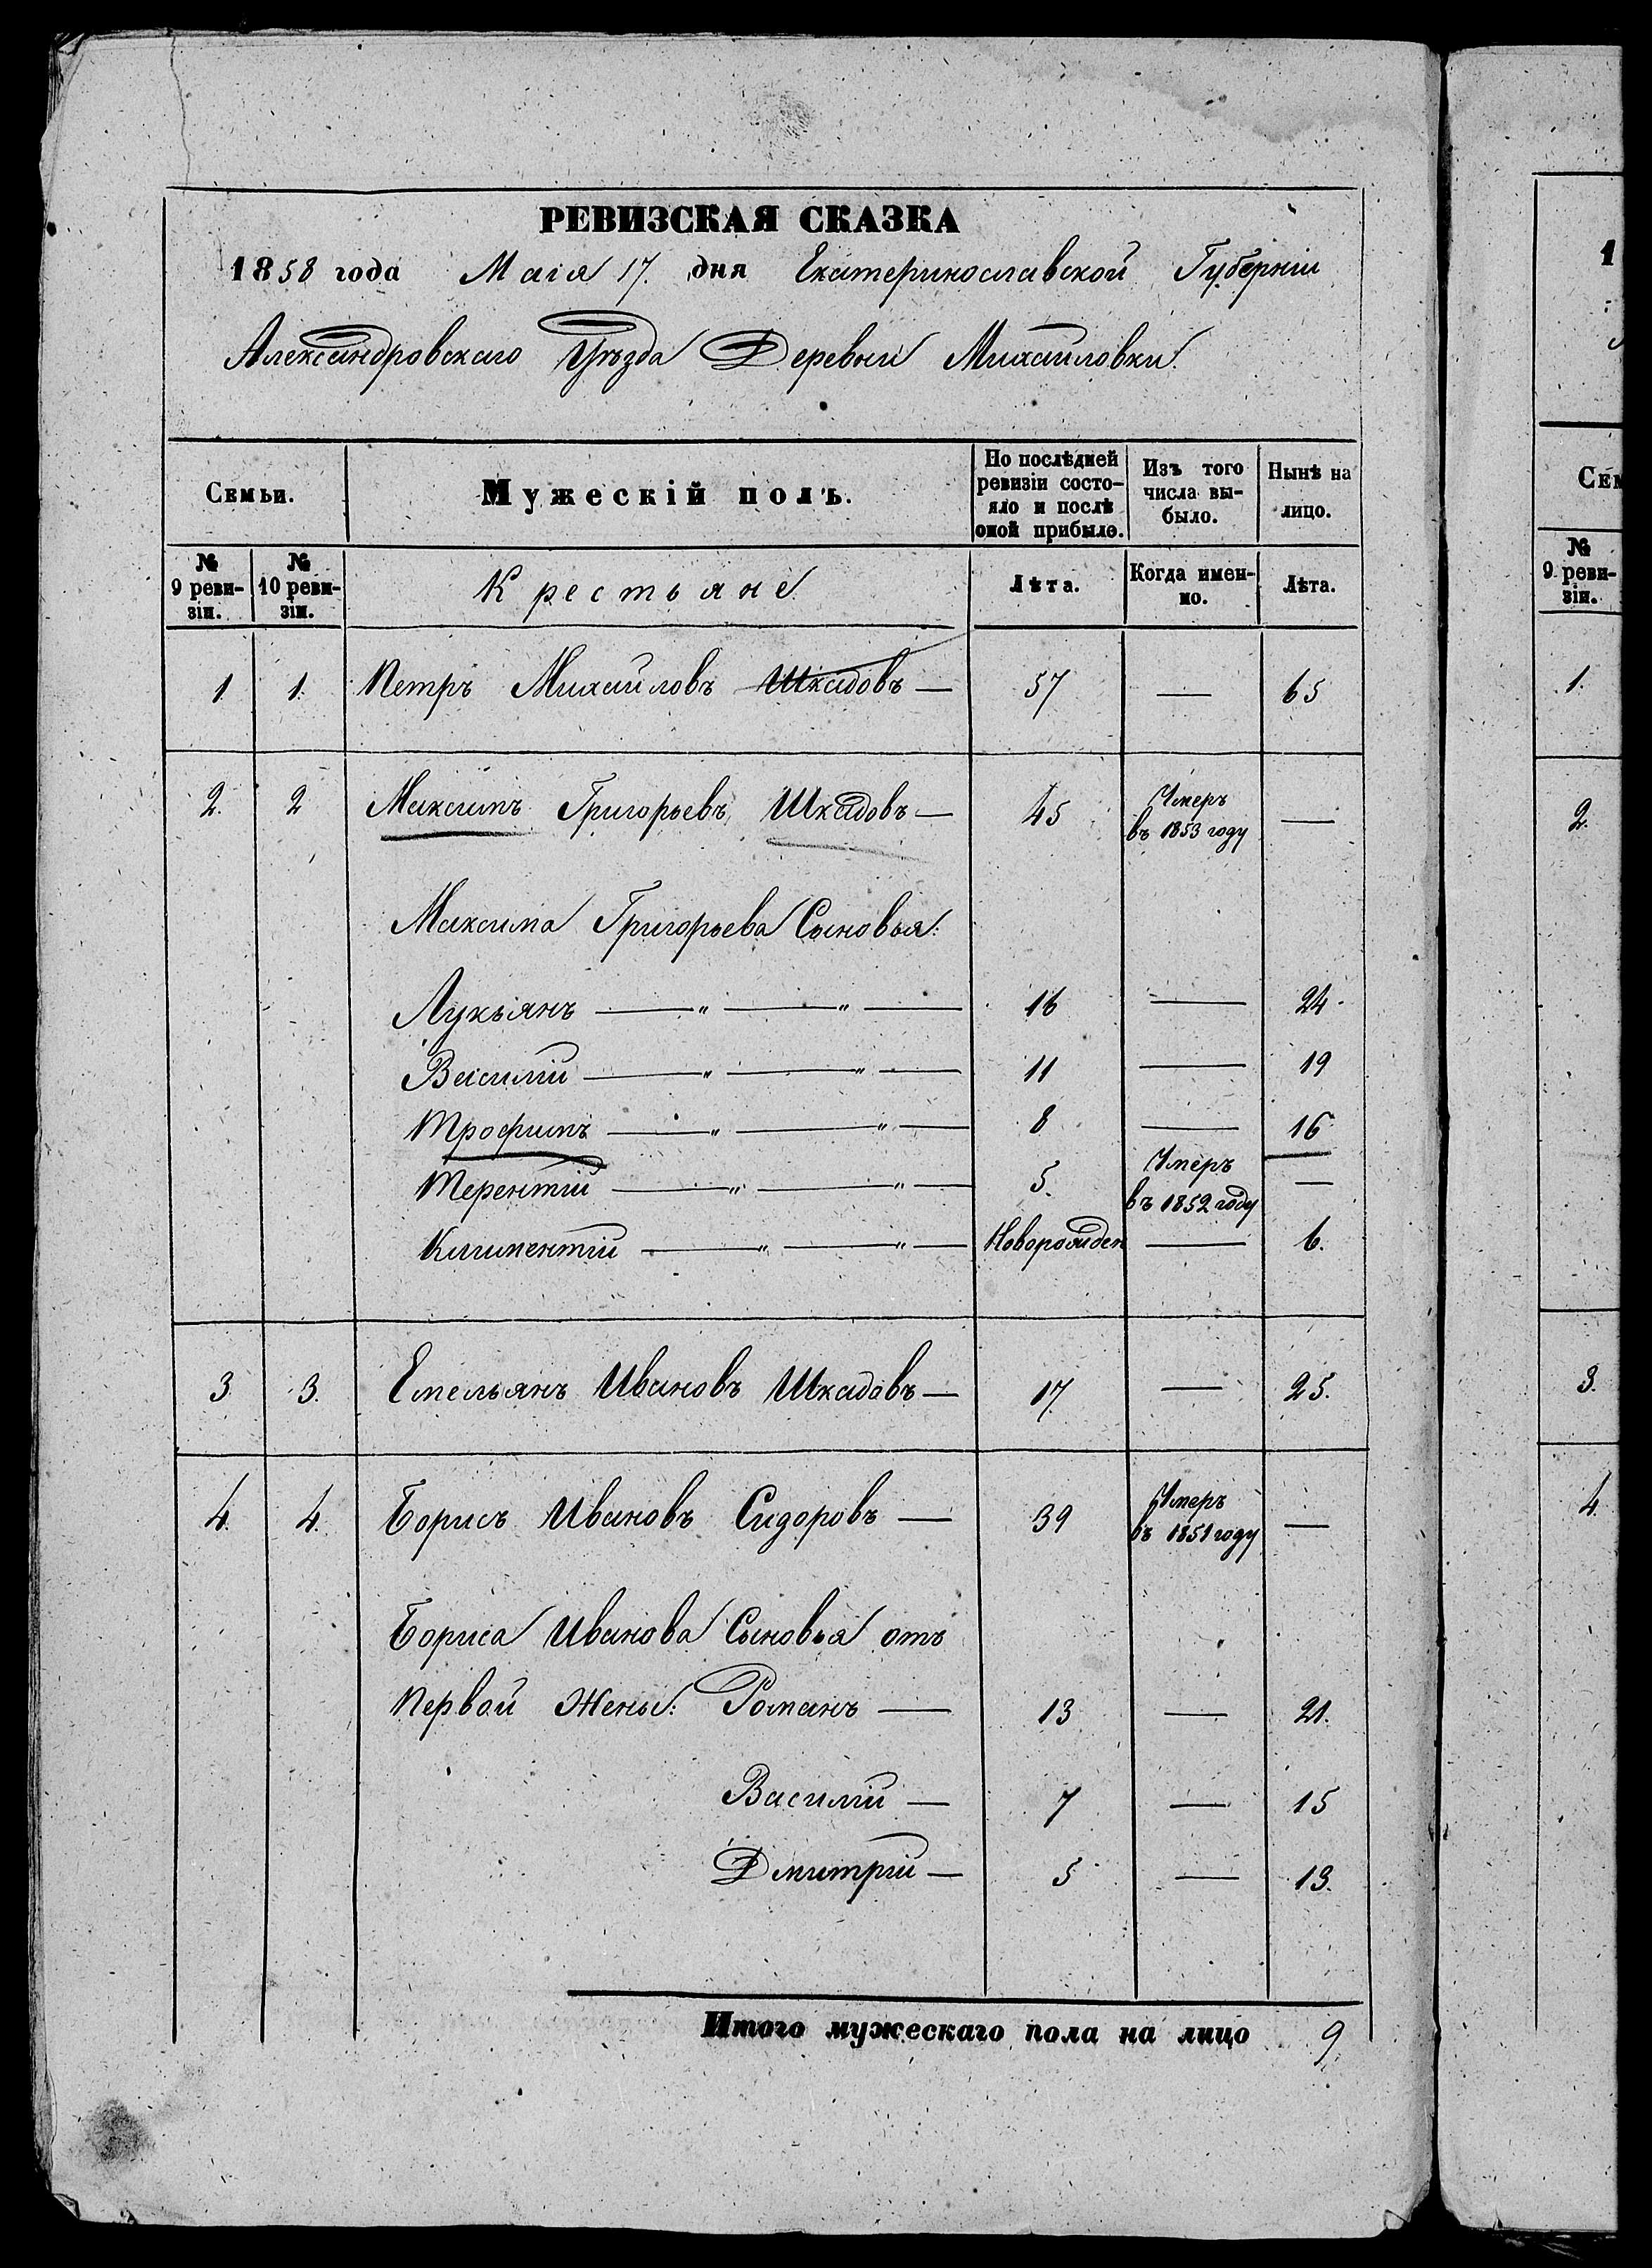 РЕВИЗСКАЯ СКАЗКА
1858 года Маія 17. дня Екатеринославской Губерніи
Александровскаго Уѣзда Деревни Михайловки.
Семьи.
Мужескій полъ.
По послѣдней ревизіи состояло и послѣ оной прибыло.
Изъ того числа выбыло.
Нынѣ на лицо.
№ 9 ревизіи.
№ 10 ревизіи.
Крестьяне
Лѣта.
Когда именно.
Лѣта.
1. 1. Петръ Михайловъ Шкадовъ — 57 — 65
2. 2 Максимъ Григорьевъ Шкадовъ — 45 Умеръ въ 1853 году —
Максима Григорьева Сыновья:
Лукьянъ — „ — „ — 16 — 24
Василій — „ — „ — 11 — 19
Трофимъ — „ — „ — 8 — 16
Терентій — „ — „ — 5. Умеръ въ 1852 году —
Климентій — „ — „ — Новорожден — 6.
3 3. Емельянъ Ивановъ Шкадовъ — 17 — 25.
4. 4. Борисъ Ивановъ Сидоровъ — 39 Умеръ въ 1851 году —
Бориса Иванова Сыновья отъ
Первой Жены: Романъ — 13 — 21.
Василій — 7 — 15
Дмитрій — 5 — 13.
Итого мужескаго пола на лицо 9
1
Сем
№
9 реви-
зіи.
1.
2.
3.
4.